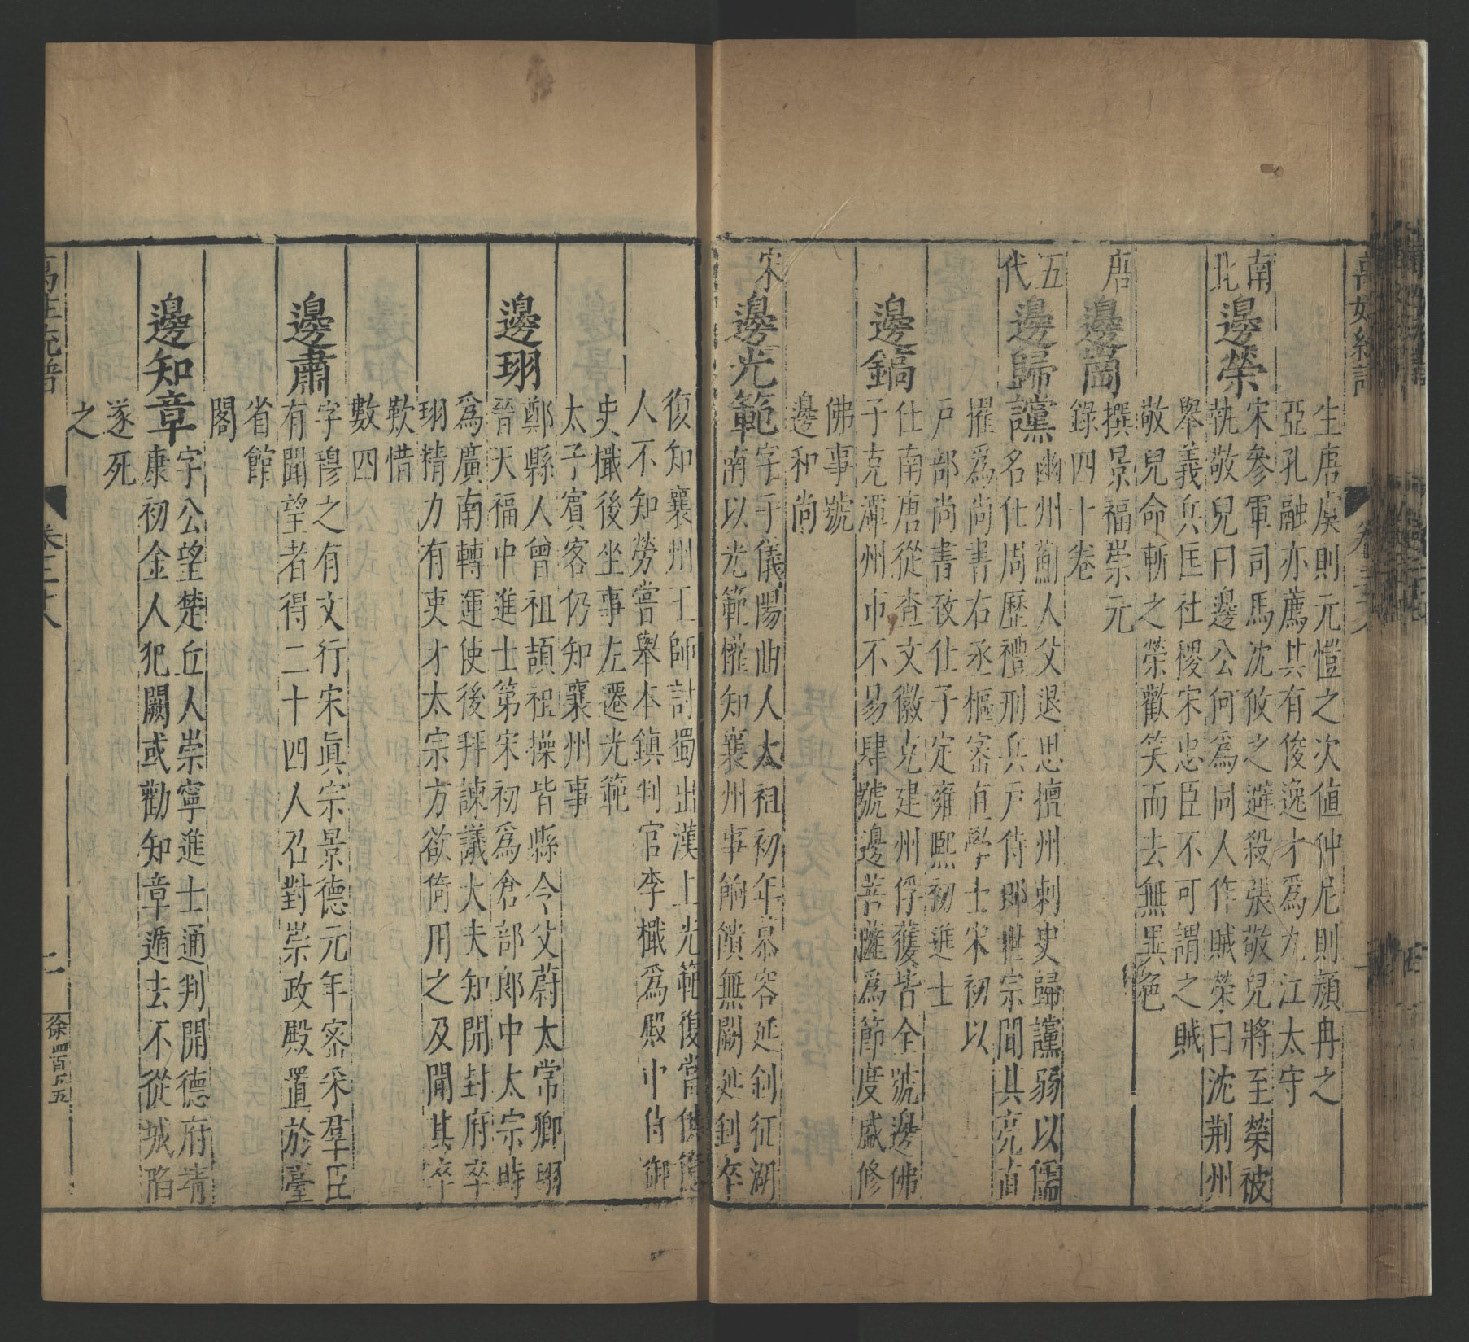 生唐虞則元愷之次值仲尼則顏冉之
亞孔融亦薦其有俊逸才為九江太守
南北
邊榮
宋參軍司馬沈攸之選殺張敬兒將至榮被
執敬兒曰邊公何爲同人作賊榮曰沈荊州
舉義兵匡社稷宋忠臣不可謂之賊
敬兒命斬之榮歡笑而去無異色
唐
邊岡
撰景福崇元
錄四十卷
五代
邊歸讜
幽州薊人父退思檀州刺史歸讜弱以儒
名仕周歷禮刑兵戶侍郎世宗聞其亮直
擢爲尚書右丞樞密直學士宋初以
戶部尚書致仕子定雍熙初進士
邊鎬
仕南唐從查文徽克建州俘獲皆全號邊佛
子克潭州市不易肆號邊菩薩爲節度盛修
佛事號
邊和尚
宋
邊光範
字子儀陽曲人太祖初年慕容延釗征湖
南以光範權知襄州事餉饋無闕延釗卒
復知襄州王師討蜀出漢上光範復當供
人不知勞嘗舉本鎮判官李檝爲殿中侍御
史檝後坐事左遷光範
太子賓客仍知襄州事
邊珝
鄭縣人曾祖頡祖操皆縣令父蔚太常卿珝
晉天福中進士第宋初爲倉部郎中太宗時
爲廣南轉運使後拜諫議大夫知開封府卒
珝精力有吏才太宗方欲倚用之及聞其卒
歎惜
數四
邊肅
字穆之有文行宋眞宗景德元年密采羣臣
有聞望者得二十四人召對崇政殿置於臺
省館
閣
邊知章
字公望楚丘人崇寧進士通判開德府靖
康初金人犯闕或勸知章遁去不從城陷
遂死
之